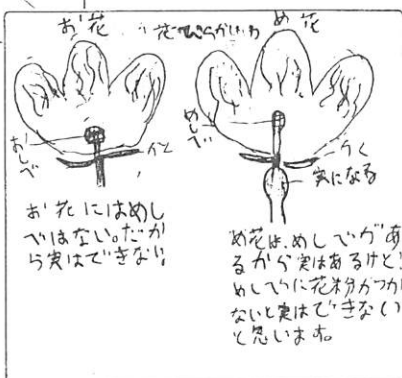 お花
花びらがいわ
め花
おしべ
がく
めしべ
がく
実になる
お花にはめし
べはない。だか
ら実はできない
め花は、めしべがあ
るから実はあるけど、
めしべに花粉がつか
ないと実はできない
と思います。